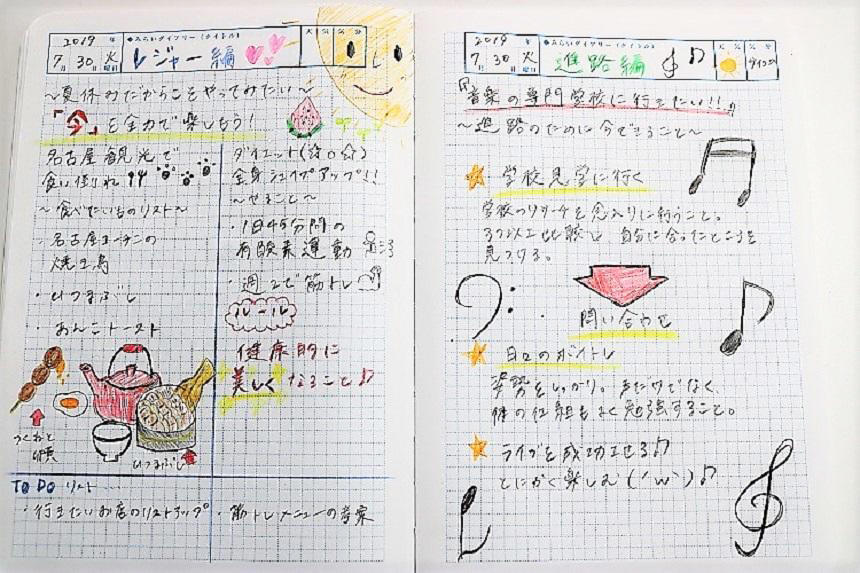 2019 年
7月 30日 火曜
レジャー編
〜夏休みだからこそやってみたい〜
「今」を全力で楽しもう!
名古屋観光で
食い倒れ!!
〜食べたいものリスト〜
・名古屋コーチンの
焼き鳥
・ひつまぶし
・あんこトースト
つくねと
卵黄
ひつまぶし
ダイエット
全身シェイプアップ!!
〜やること〜
・1日45分間の
有酸素運動
・週2で筋トレ
ルール
健康的に
美しくなること♪
TO DO リスト
・行きたいお店のリストアップ
・筋トレメニューの考案
2019 年
7月 30日 火曜
進路編
『音楽の専門学校に行きたい!!』
〜進路のために今できること〜
学校見学に行く
学校のリサーチを念入りに行うこと。
3つ以上比較し 自分に合ったところを
見つける。
問い合わせ
日々のボイトレ
姿勢をしっかり。声だけでなく、
体の仕組もよく勉強すること。
ライブを成功させる♪
とにかく楽しむ('ω')♪